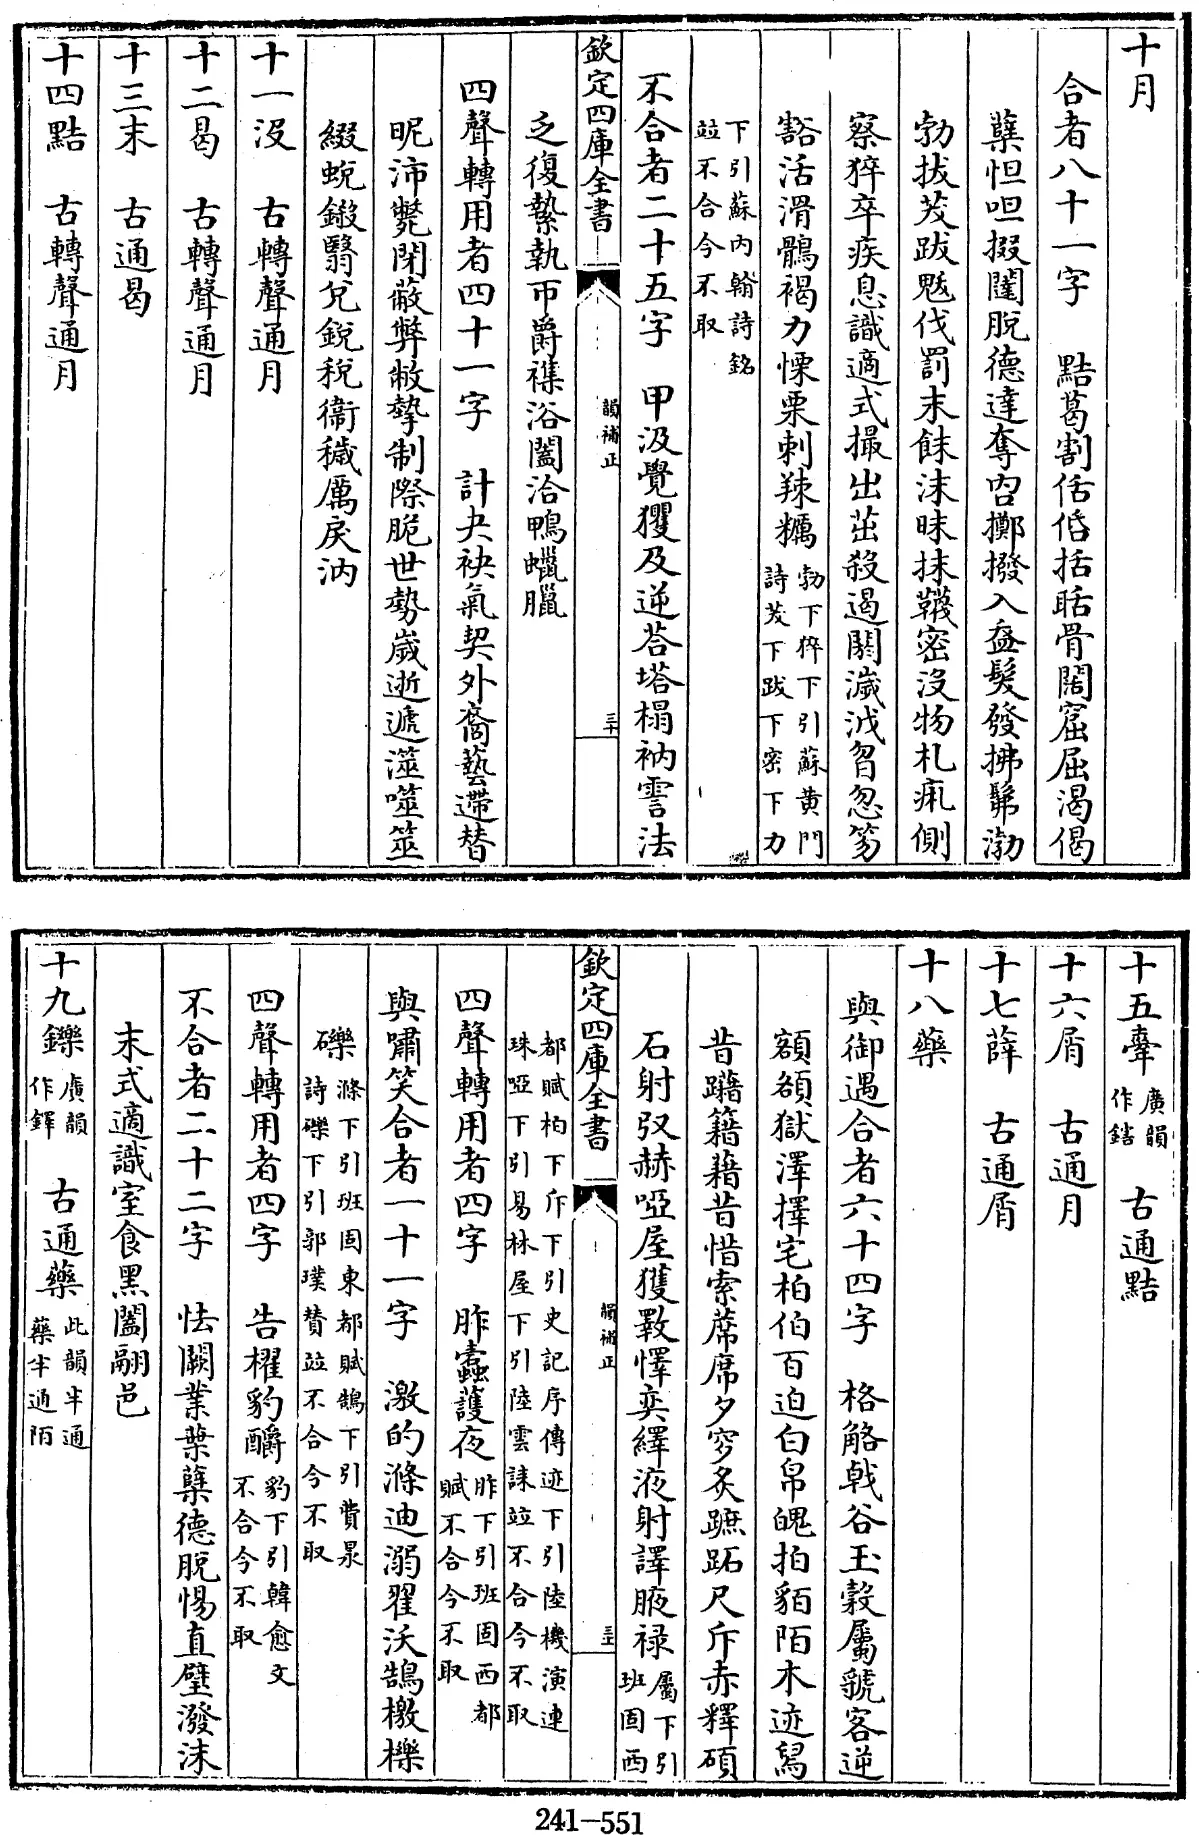 十月
合者八十一字　黠葛割佸偱括聒骨闊窟屈渴偈
蘖怛呾掇闥脱德達奪㕯擲撥入盋髮發拂髴渤
勃拔茇跋魃伐罰末餗沫昧抹韈密沒物札瘌側
察猝卒疾息識適式撮出茁殺遏閼濊泧曶忽笏
豁活滑鶻褐力慄栗剌辣糲勃下猝下引蘇黄門
詩茇下跋下密下力
下引蘇内翰詩銘
竝不合今不取
不合者二十五字　甲汲覺玃及逆荅塔榻衲霅法
欽定四庫全書
韻補正
三十
乏復縶執帀爵襍浴闔洽鴨蠟臘
四聲轉用者四十一字　計夬袂氣契外裔藝遰替
昵沛甏閉蔽弊敝摯制際脆世勢歲逝遞澨噬筮
綴蛻鎩翳兌銳稅衞穢厲戾汭
十一沒　古轉聲通月
十二曷　古轉聲通月
十三末　古通曷
十四黠　古轉聲通月
十五舝廣韻
作鎋　古通黠
十六屑　古通月
十七薛　古通屑
十八藥
與御遇合者六十四字　格觡戟谷玉穀屬虢客逆
額頟獄澤擇宅柏伯百迫白帛魄拍貊陌木迹舃
昔躤籍藉昔惜索蓆席夕穸炙蹠跖尺斥赤釋碩
石射㕛赫啞屋獲斁懌奕繹液射譯腋禄屬下引
班固西
都賦柏下斥下引史記序傳迹下引陸機演連
珠啞下引易林屋下引陸雲誄竝不合今不取
欽定四庫全書
韻補正
三十一
四聲轉用者四字　胙蠹護夜胙下引班固西都
賦不合今不取
與嘯笑合者一十一字　激的滌迪溺翟沃鵠檄櫟
礫滌下引班固東都賦鵠下引費㫤
詩礫下引郭璞贊竝不合今不取
四聲轉用者四字　告櫂豹醻豹下引韓愈文
不合今不取
不合者二十二字　怯闕業葉蘖德脱惕直壁潑沫
末式適識室食黑闔翮邑
十九鑠廣韻
作鐸　古通藥此韻半通
藥半通陌
241-551